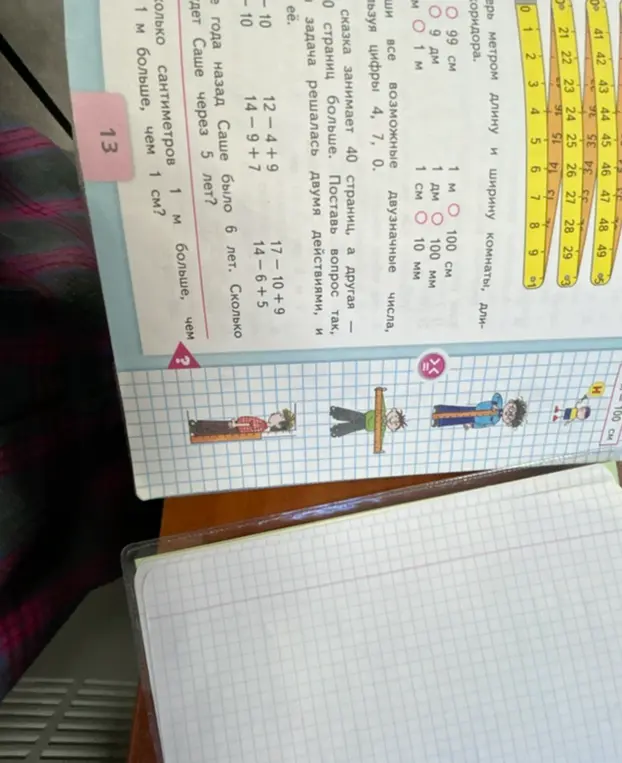 100 см
41 42 43 44 45 46 47 48 49
21 22 23 24 25 26 27 28 29
0 1 2 3 4 5 6 7 8 9
метром длину и ширину комнаты,
99 см 1 м 100 см
9 дм 1 дм 100 мм
1 м 1 см 10 мм
все возможные двузначные числа,
цифры 4, 7, 0.
сказка занимает 40 страниц, а другая —
страниц больше. Поставь вопрос так,
задача решалась двумя действиями, и
её.
– 10 12 – 4 + 9 17 – 10 + 9
– 10 14 – 9 + 7 14 – 6 + 5
года назад Саше было 6 лет. Сколько
Саше через 5 лет?
сантиметров 1 м больше, чем
1 м больше, чем 1 см?
?
13